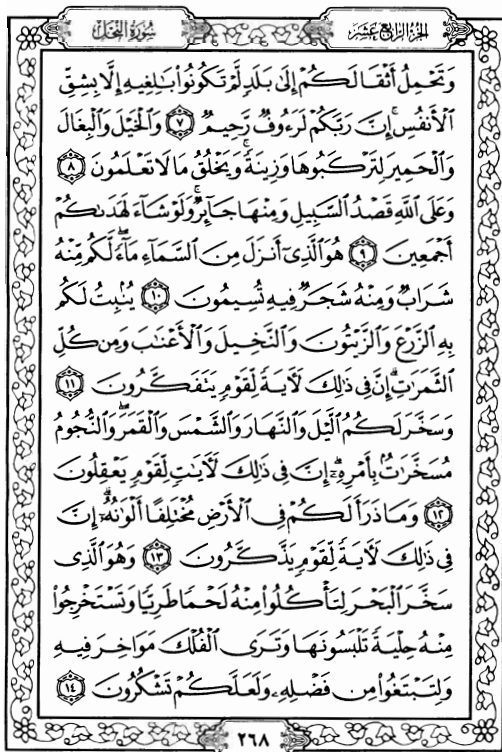 سُورَةُ النَّحْلِ
الجُزْءُ الرَّابِعَ عَشَرَ
وَتَحْمِلُ أَثْقَالَكُمْ إِلَىٰ بَلَدٍ لَّمْ تَكُونُوا۟ بَـٰلِغِيهِ إِلَّا بِشِقِّ
ٱلْأَنفُسِ ۚ إِنَّ رَبَّكُمْ لَرَءُوفٌ رَّحِيمٌ ٧ وَٱلْخَيْلَ وَٱلْبِغَالَ
وَٱلْحَمِيرَ لِتَرْكَبُوهَا وَزِينَةً ۚ وَيَخْلُقُ مَا لَا تَعْلَمُونَ ٨
وَعَلَى ٱللَّهِ قَصْدُ ٱلسَّبِيلِ وَمِنْهَا جَآئِرٌ ۚ وَلَوْ شَآءَ لَهَدَىٰكُمْ
أَجْمَعِينَ ٩ هُوَ ٱلَّذِىٓ أَنزَلَ مِنَ ٱلسَّمَآءِ مَآءً ۖ لَّكُم مِّنْهُ
شَرَابٌ وَمِنْهُ شَجَرٌ فِيهِ تُسِيمُونَ ١٠ يُنۢبِتُ لَكُم
بِهِ ٱلزَّرْعَ وَٱلزَّيْتُونَ وَٱلنَّخِيلَ وَٱلْأَعْنَـٰبَ وَمِن كُلِّ
ٱلثَّمَرَٰتِ ۗ إِنَّ فِى ذَٰلِكَ لَـَٔايَةً لِّقَوْمٍ يَتَفَكَّرُونَ ١١
وَسَخَّرَ لَكُمُ ٱلَّيْلَ وَٱلنَّهَارَ وَٱلشَّمْسَ وَٱلْقَمَرَ ۖ وَٱلنُّجُومُ
مُسَخَّرَٰتٌۢ بِأَمْرِهِۦٓ ۗ إِنَّ فِى ذَٰلِكَ لَـَٔايَـٰتٍ لِّقَوْمٍ يَعْقِلُونَ
١٢ وَمَا ذَرَأَ لَكُمْ فِى ٱلْأَرْضِ مُخْتَلِفًا أَلْوَٰنُهُۥٓ ۗ إِنَّ
فِى ذَٰلِكَ لَـَٔايَةً لِّقَوْمٍ يَذَّكَّرُونَ ١٣ وَهُوَ ٱلَّذِى
سَخَّرَ ٱلْبَحْرَ لِتَأْكُلُوا۟ مِنْهُ لَحْمًا طَرِيًّا وَتَسْتَخْرِجُوا۟
مِنْهُ حِلْيَةً تَلْبَسُونَهَا وَتَرَى ٱلْفُلْكَ مَوَاخِرَ فِيهِ
وَلِتَبْتَغُوا۟ مِن فَضْلِهِۦ وَلَعَلَّكُمْ تَشْكُرُونَ ١٤
٢٦٨